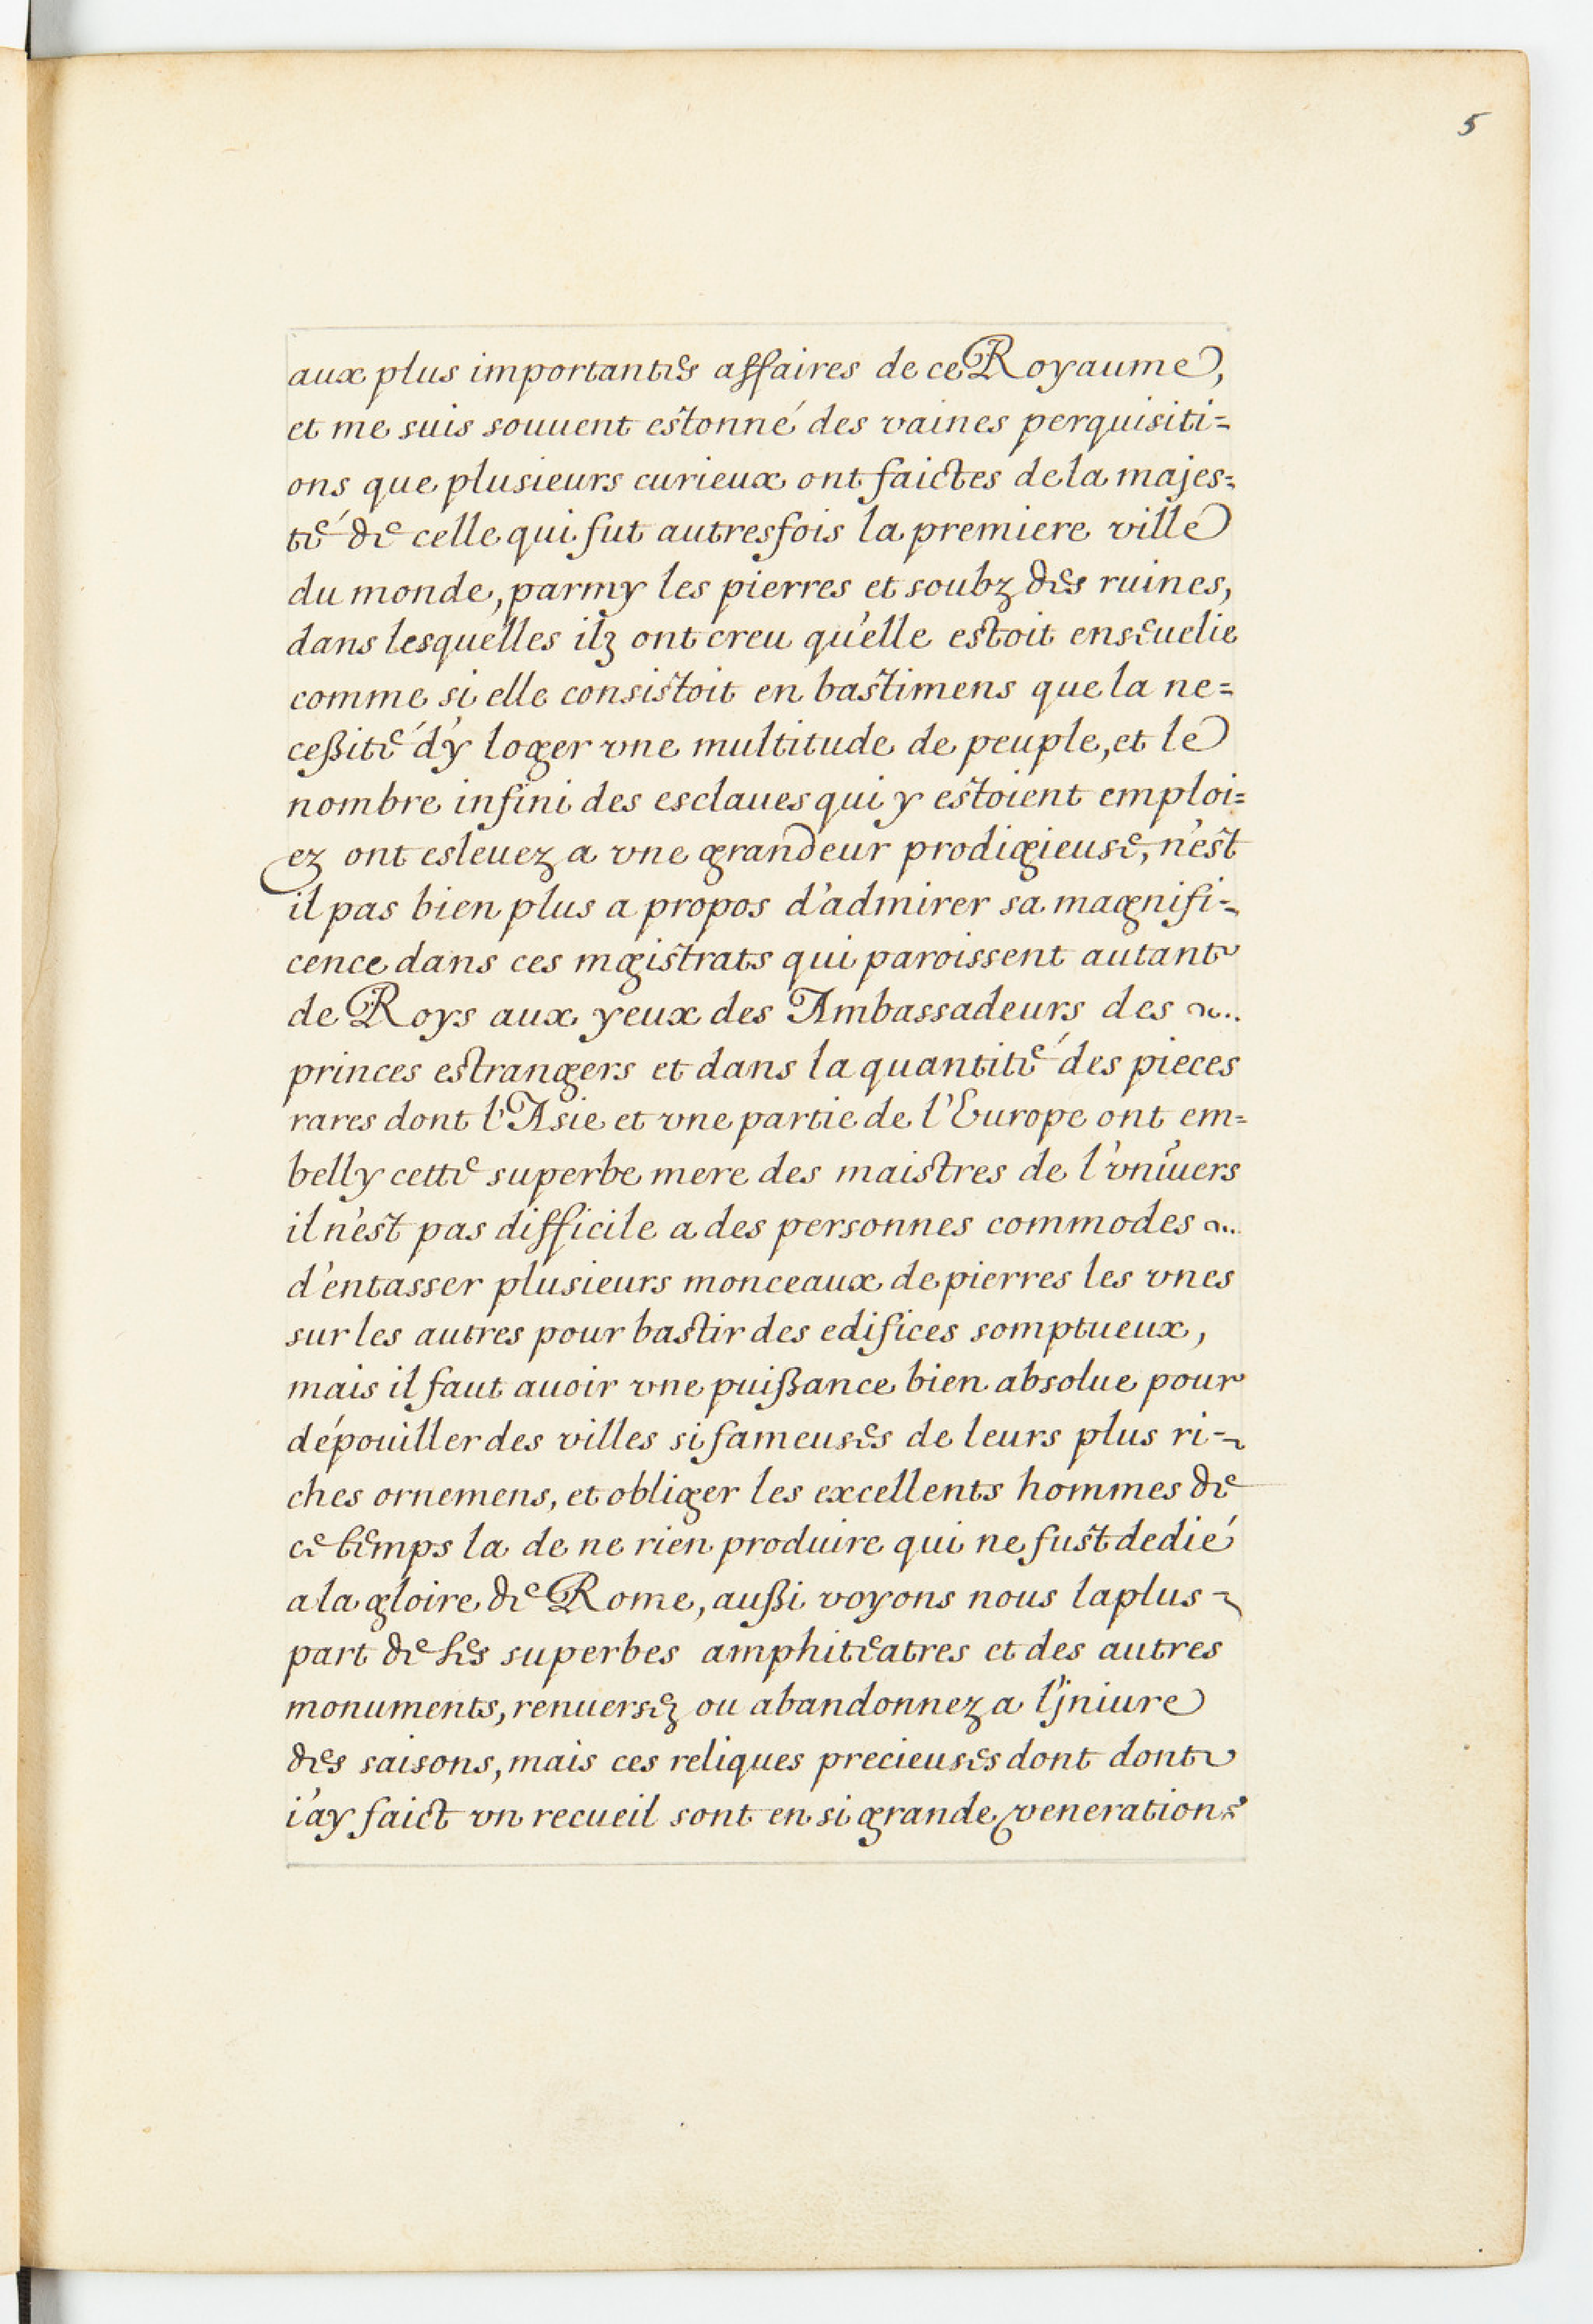 5
aux plus importantes affaires de ce Royaume,
et me suis souuent estonné des vaines perquisiti=
ons que plusieurs curieux ont faictes de la majes=
té de celle qui fut autresfois la premiere ville
du monde, parmy les pierres et soubz des ruines,
dans lesquelles ilz ont creu qu'elle estoit enseuelie
comme si elle consistoit en bastimens que la ne=
ceßité d'y loger vne multitude de peuple, et le
nombre infini des esclaues qui y estoient emploi=
ez ont esleuez a vne grandeur prodigieuse, n'est
il pas bien plus a propos d'admirer sa magnifi=
cence dans ces mgistrats qui paroissent autant
de Roys aux yeux des Ambassadeurs des
princes estrangers et dans la quantité des pieces
rares dont l'Asie et vne partie de l'Europe ont em=
belly cette superbe mere des maistres de l'vniuers
il n'est pas difficile a des personnes commodes
d'entasser plusieurs monceaux de pierres les vnes
sur les autres pour bastir des edifices somptueux,
mais il faut auoir vne puißance bien absolue pour
dépouiller des villes si fameuses de leurs plus ri-
ches ornemens, et obliger les excellents hommes de
ce temps la de ne rien produire qui ne fust dedié
a la gloire de Rome, außi voyons nous la plus-
part de ses superbes amphiteatres et des autres
monuments, renuersez ou abandonnez a l'jniure
des saisons, mais ces reliques precieuses dont dont
i'ay faict vn recueil sont en si grande veneration